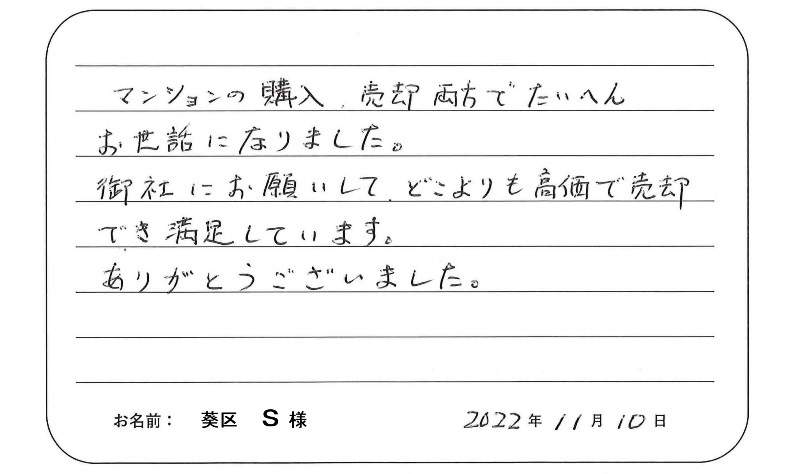 マンションの購入、売却両方でたいへん
お世話になりました。
御社にお願いして、どこよりも高価で売却
でき満足しています。
ありがとうございました。
お名前： 葵区 S 様 2022年 11月 10日